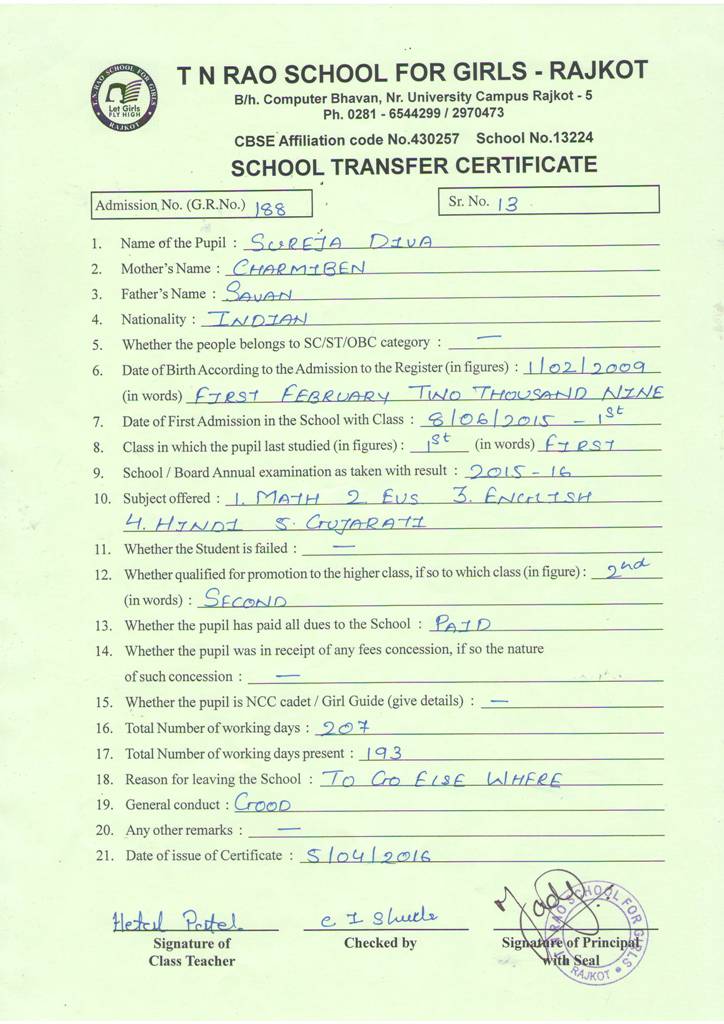 T. N. RAO SCHOOL FOR GIRLS
Let Girls
FLY HIGH
RAJKOT
T N RAO SCHOOL FOR GIRLS - RAJKOT
B/h. Computer Bhavan, Nr. University Campus Rajkot - 5
Ph. 0281 - 6544299 / 2970473
CBSE Affiliation code No.430257 School No.13224
SCHOOL TRANSFER CERTIFICATE
Admission No. (G.R.No.) 188
Sr. No. 13
1. Name of the Pupil : SUREJA DIVA
2. Mother's Name : CHARMIBEN
3. Father's Name : SAVAN
4. Nationality : INDIAN
5. Whether the people belongs to SC/ST/OBC category : —
6. Date of Birth According to the Admission to the Register (in figures) : 1/02/2009
(in words) FIRST FEBRUARY TWO THOUSAND NINE
7. Date of First Admission in the School with Class : 8/06/2015 - 1st
8. Class in which the pupil last studied (in figures) : 1st (in words) FIRST
9. School / Board Annual examination as taken with result : 2015-16
10. Subject offered : 1. MATH 2. EVS 3. ENGLISH
4. HINDI 5. GUJARATI
11. Whether the Student is failed : —
12. Whether qualified for promotion to the higher class, if so to which class (in figure) : 2nd
(in words) : SECOND
13. Whether the pupil has paid all dues to the School : PAID
14. Whether the pupil was in receipt of any fees concession, if so the nature
of such concession : —
15. Whether the pupil is NCC cadet / Girl Guide (give details) : —
16. Total Number of working days : 207
17. Total Number of working days present : 193
18. Reason for leaving the School : TO GO ELSE WHERE
19. General conduct : GOOD
20. Any other remarks : —
21. Date of issue of Certificate : 5/04/2016
Hetal Patel
C I Shukle
Signature of
Class Teacher
Checked by
Signature of Principal
with Seal
T N RAO SCHOOL FOR GIRLS
RAJKOT